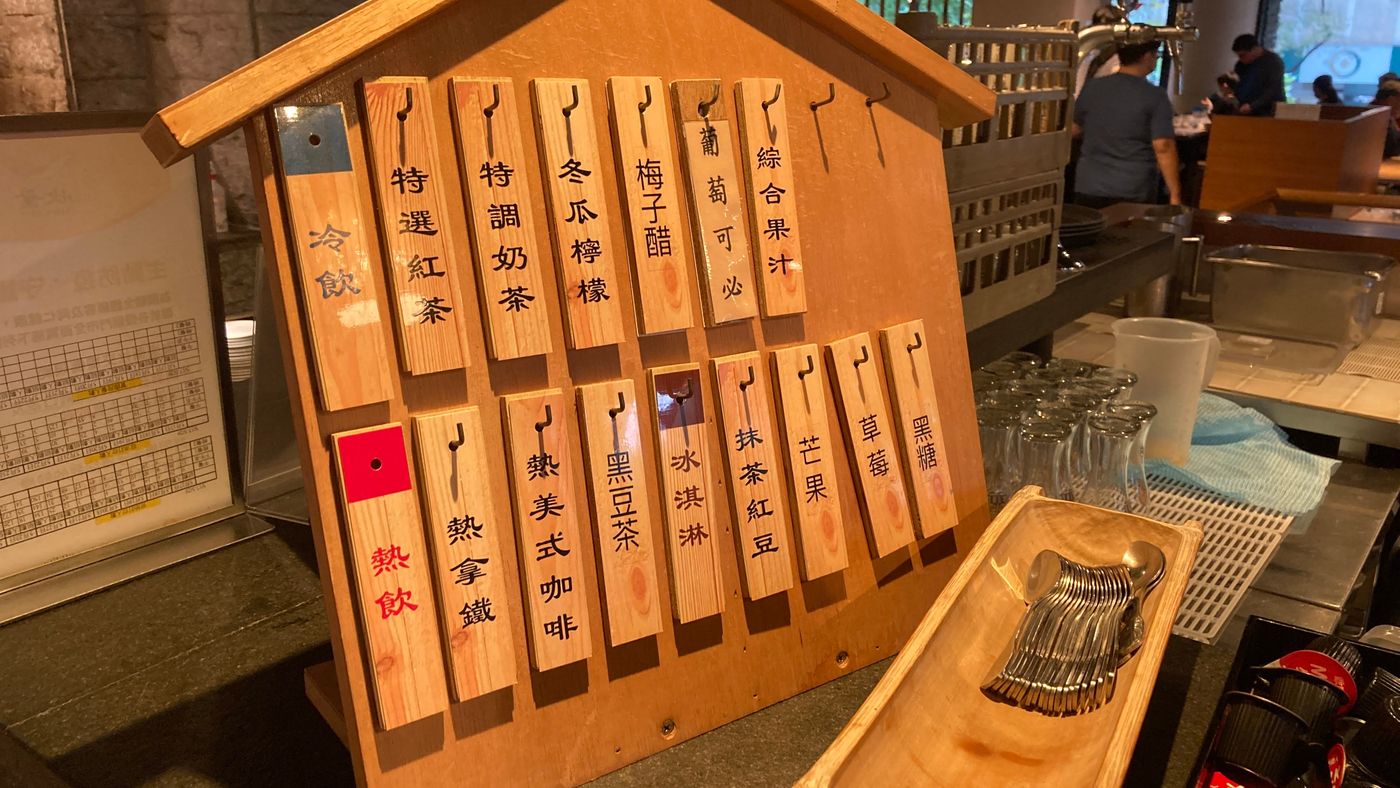 冷飲
特選紅茶
特調奶茶
冬瓜檸檬
梅子醋
葡萄可必
綜合果汁
熱飲
熱拿鐵
熱美式咖啡
黑豆茶
冰淇淋
抹茶紅豆
芒果
草莓
黑糖